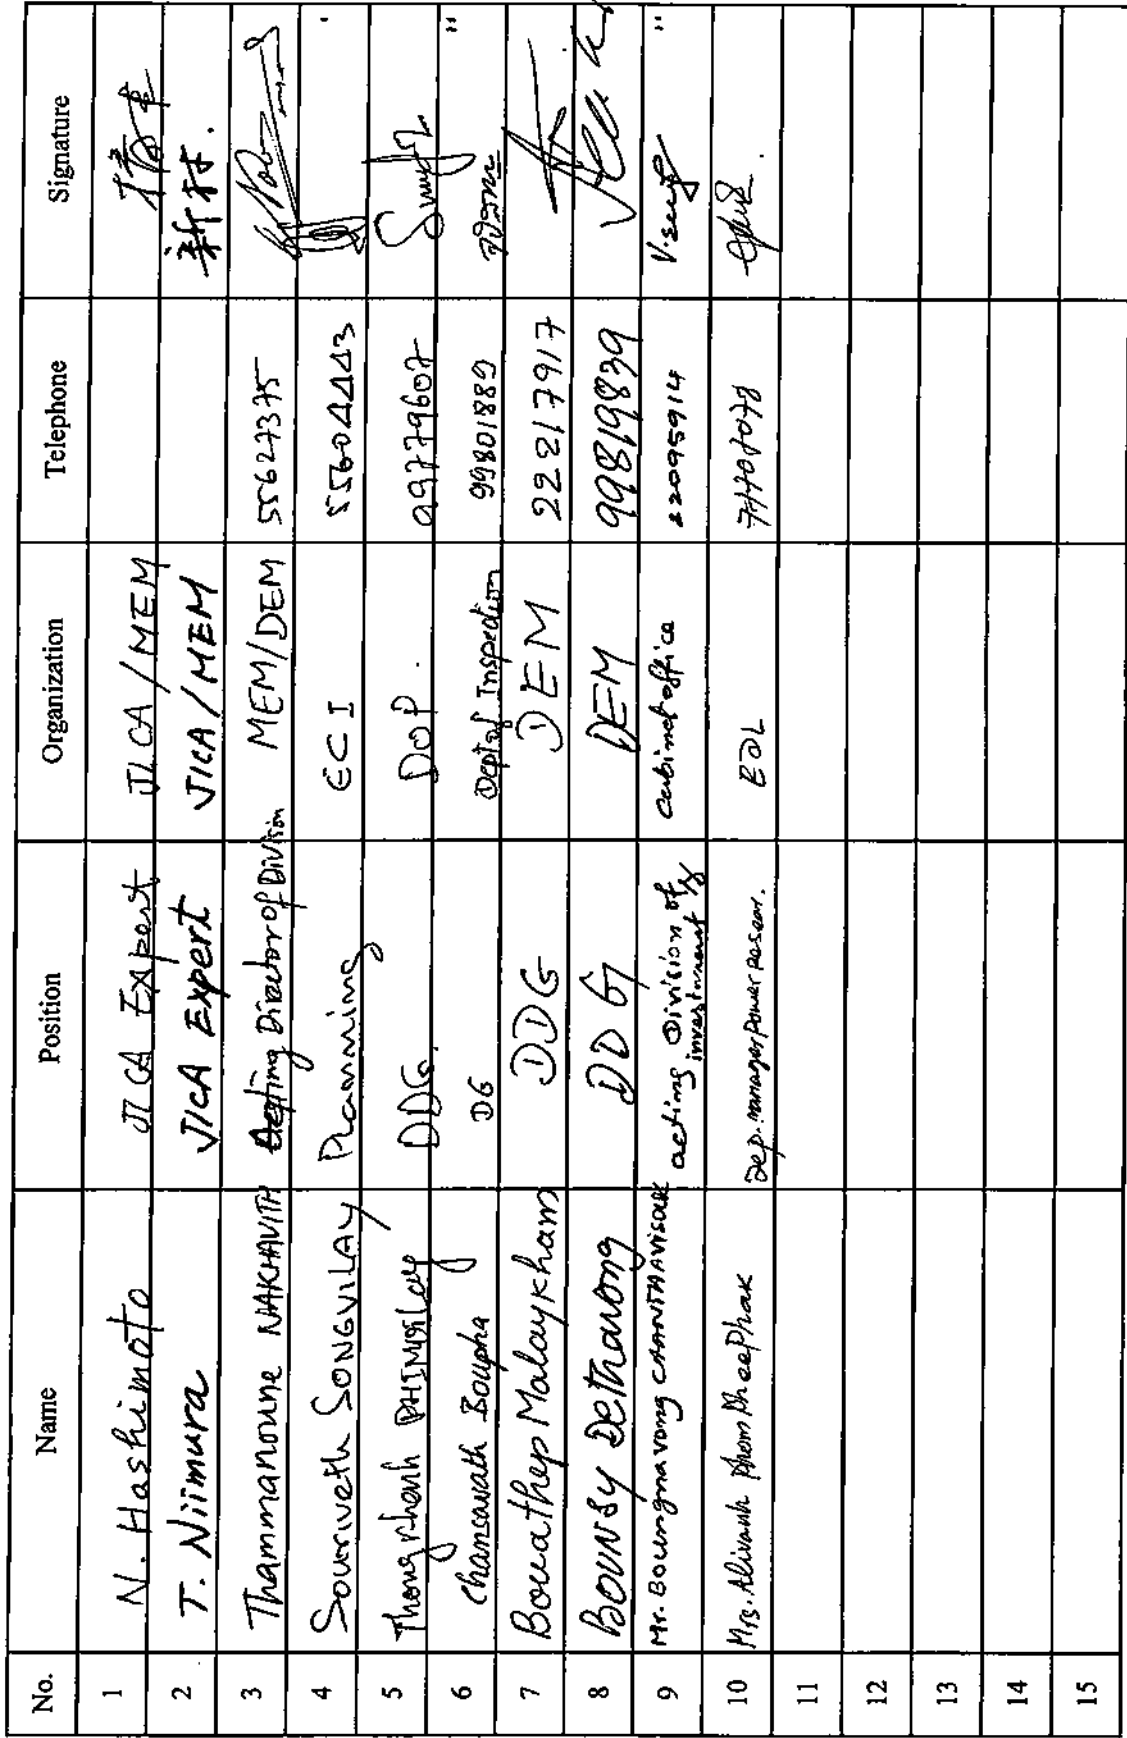 No. Name Position Organization Telephone Signature
1 N. Hashimoto JICA Expert JICA/MEM
2 T. Niimura JICA Expert JICA/MEM 新村.
3 Thammanoune NAKHAVITH Acting Director of Division MEM/DEM 55627375
4 Souriveth SONGVILAY Planning ECI 55604443
5 DDG. DOP. 99779607
6 Chansavath Boupha DG Dept of Inspection 99801889 "
7 Bouathep Malaykham DDG DEM 22217917
8 BOUNSY Dethavong DDG DEM 99819839
9 Mr. Boungnavong CHANTHAVISOUK acting Division of investment cabinet office 22095914 "
10 Mrs. Alivanh Phompheephak Dep. manager power EDL
11
12
13
14
15